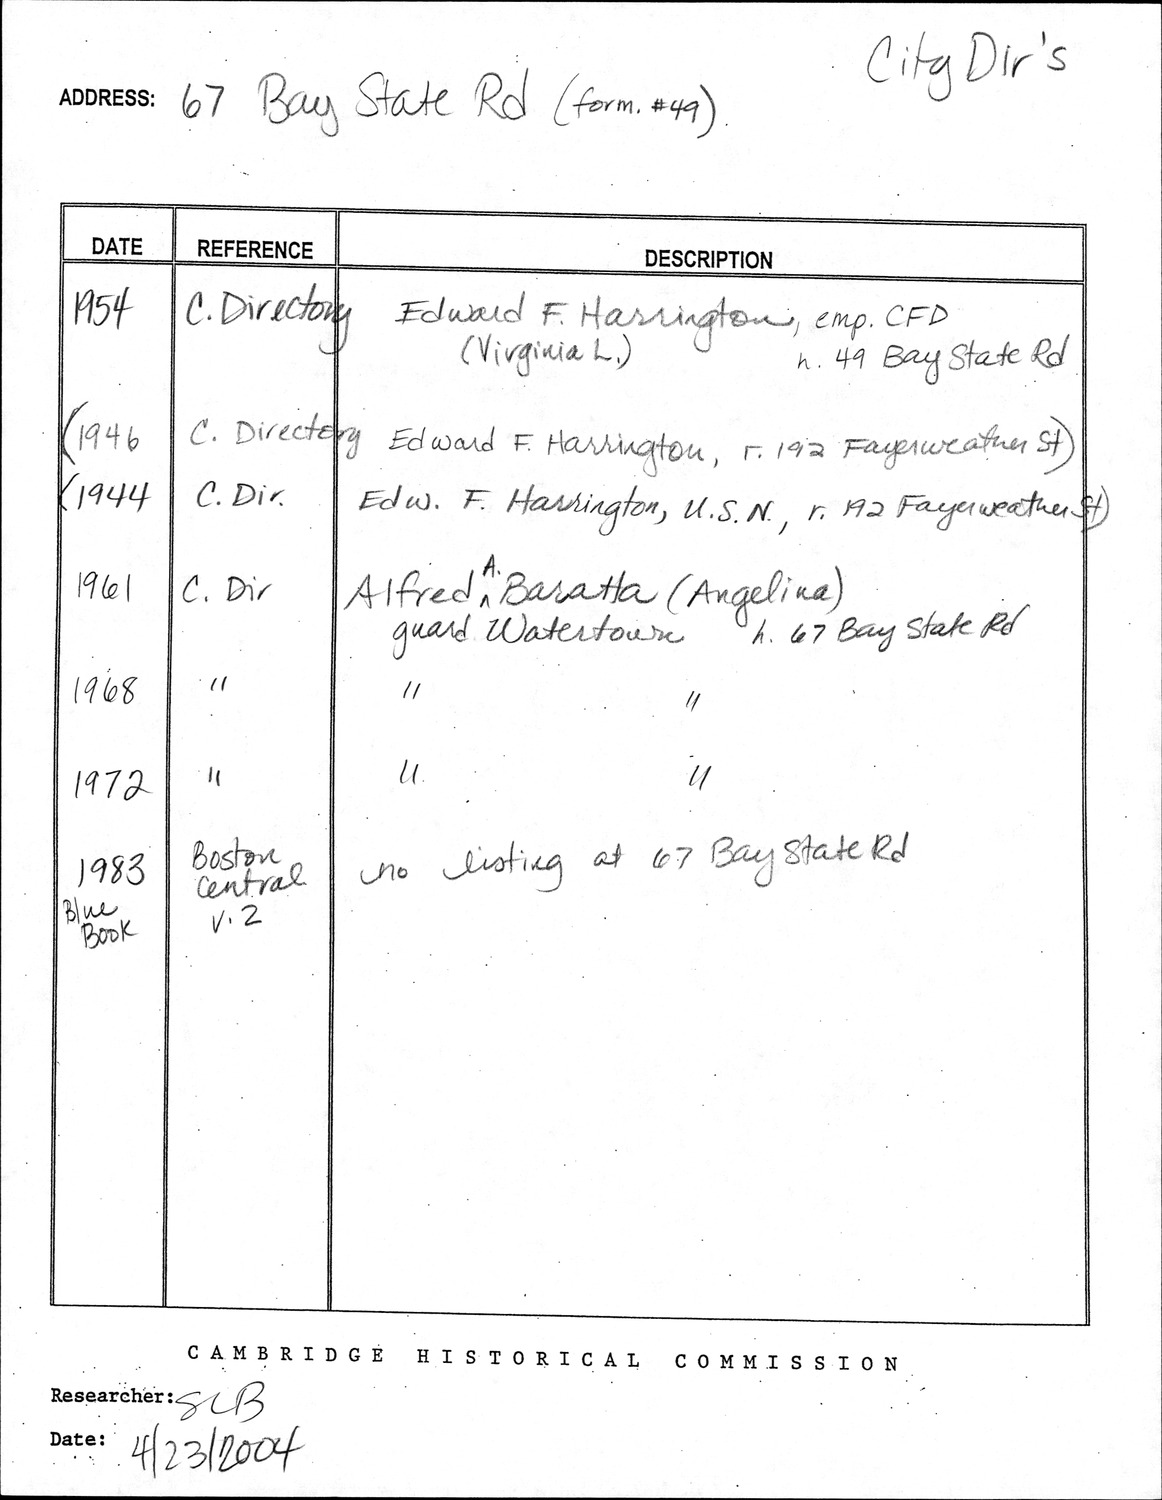 City Dir's
ADDRESS: 67 Bay State Rd (form. #49)
DATE REFERENCE DESCRIPTION
1954 C. Directory Edward F. Harrington, emp. CFD
(Virginia L.) h. 49 Bay State Rd
(1946 C. Directory Edward F. Harrington, r. 192 Fayerweather St)
(1944 C. Dir. Edw. F. Harrington, U.S.N., r. 192 Fayerweather St)
1961 C. Dir Alfred A. Baratta (Angelina)
guard Watertown h. 67 Bay State Rd
1968 " " "
1972 " " "
1983 Boston no listing at 67 Bay State Rd
Central
Blue v. 2
Book
CAMBRIDGE HISTORICAL COMMISSION
Researcher: SLB
Date: 4/23/2004